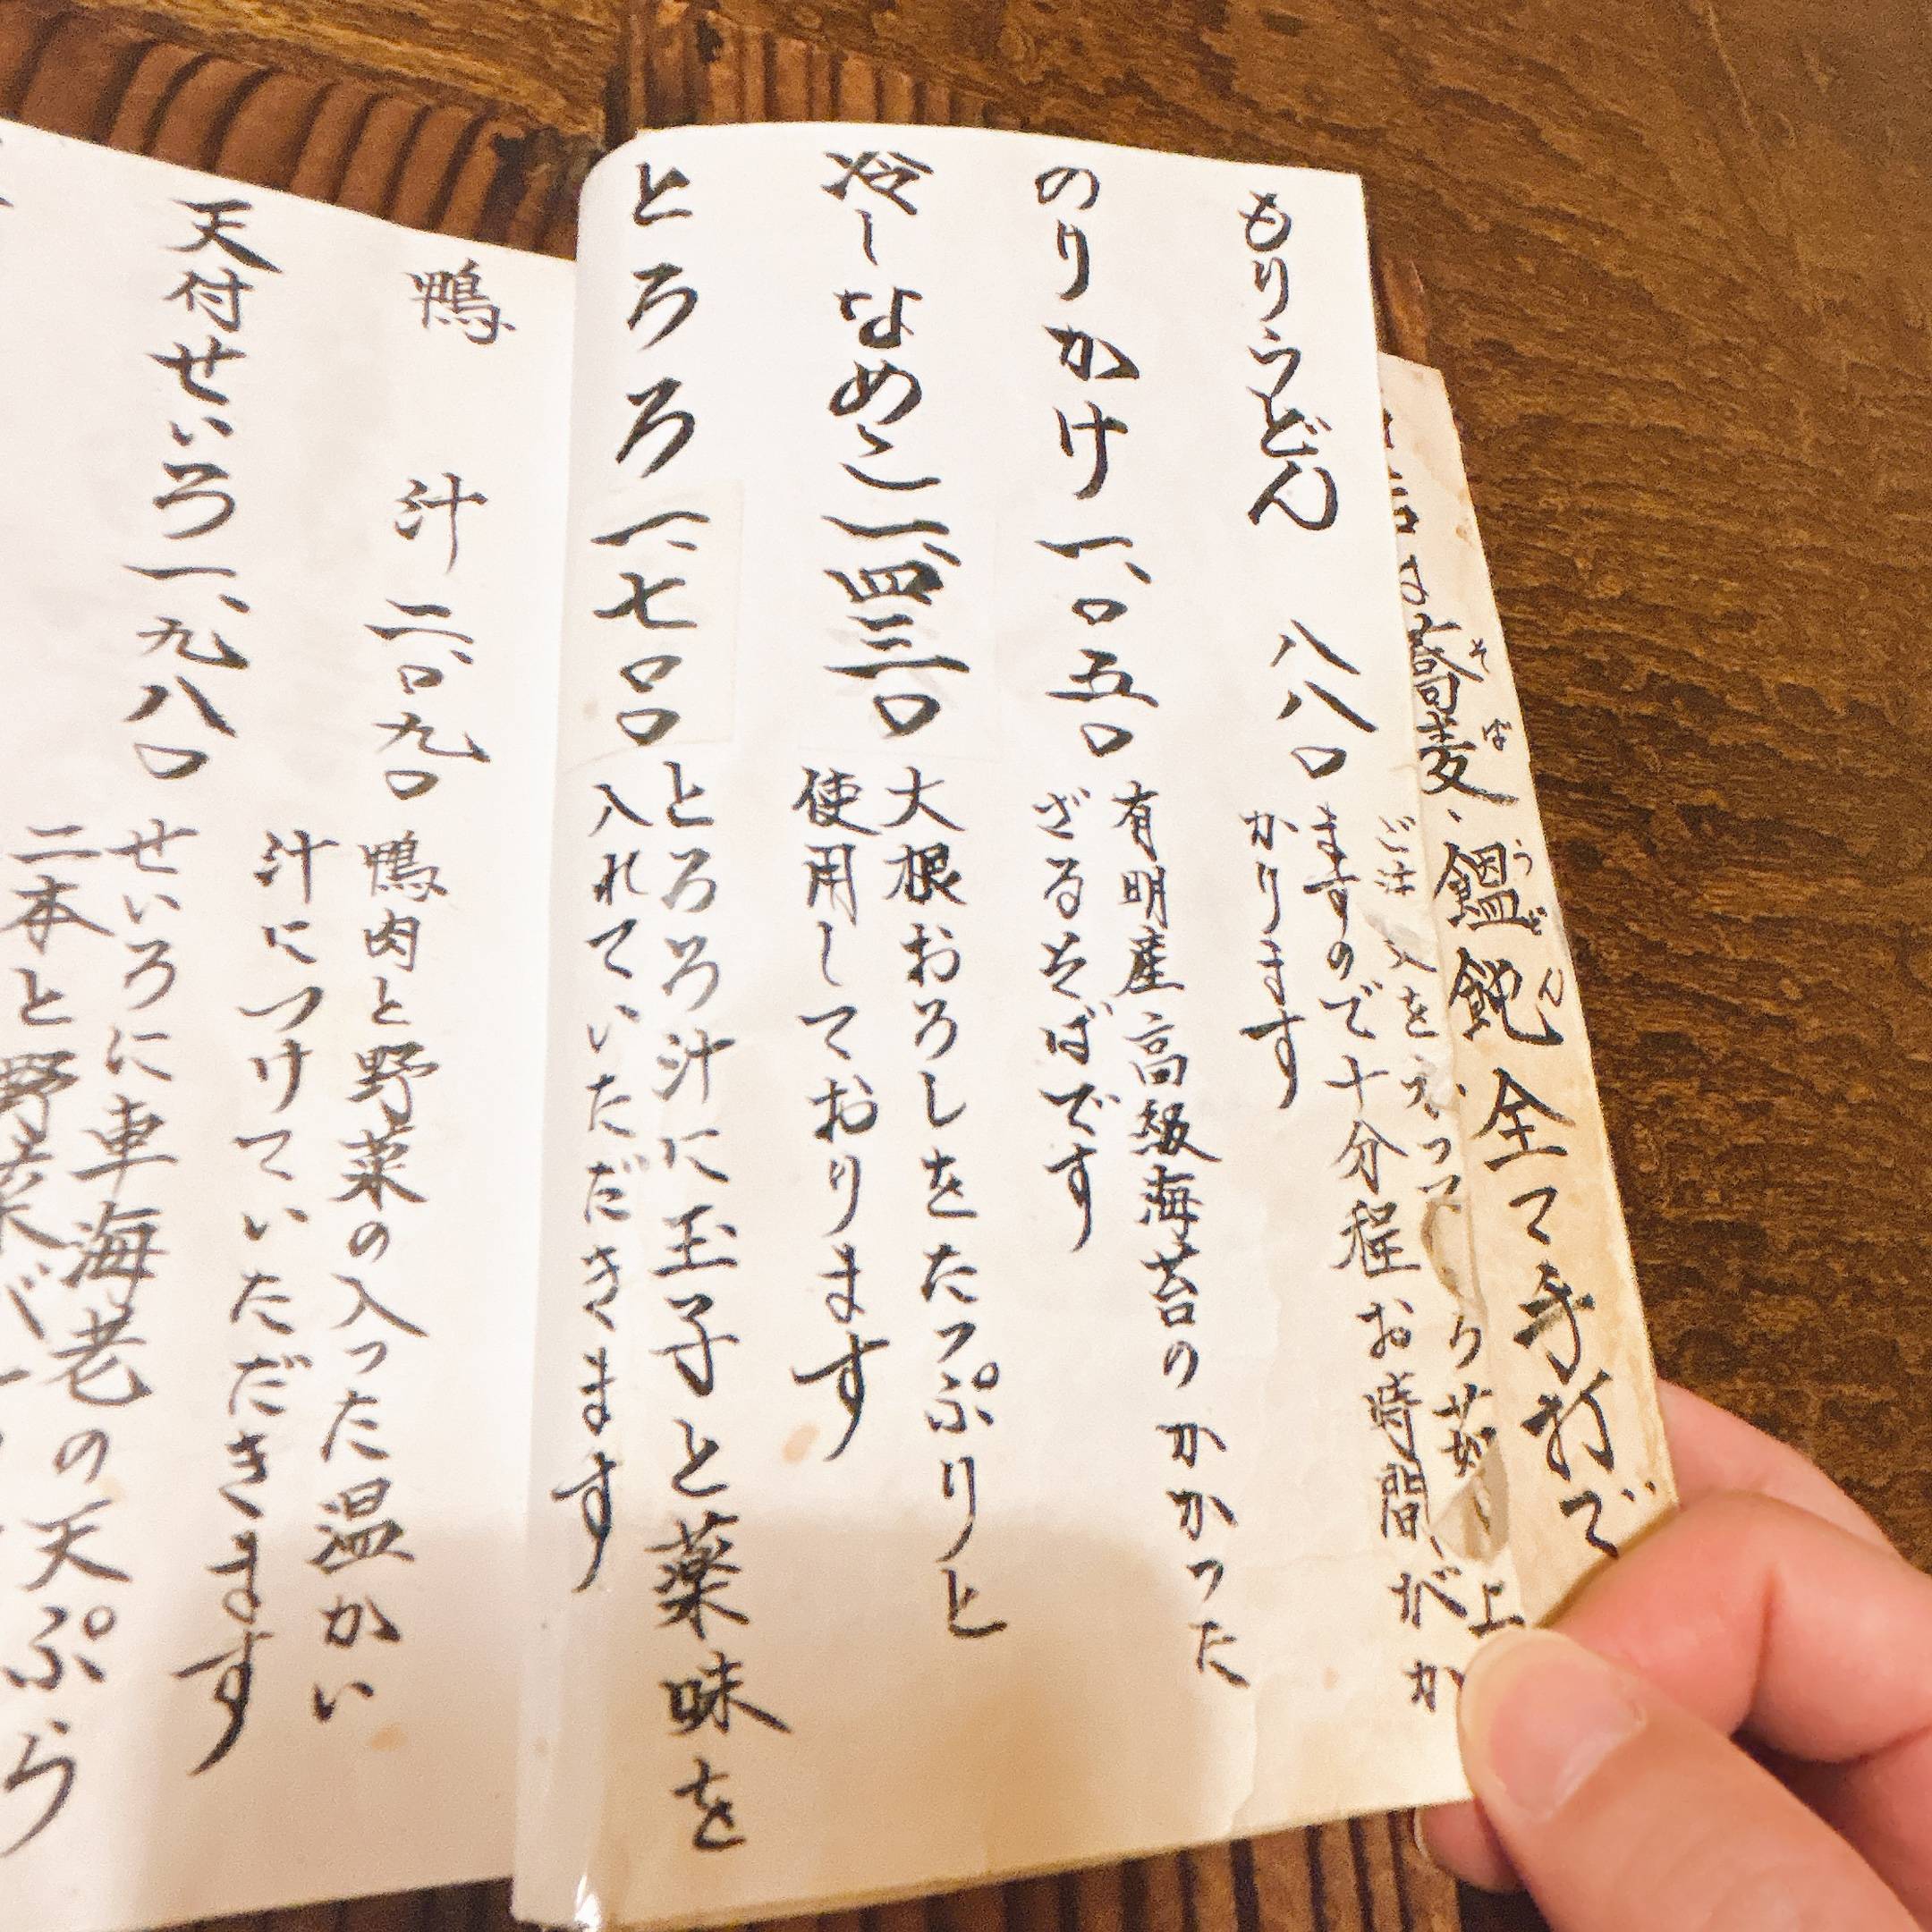 蕎麦・饂飩全て手打で
そば
うどん
もりうどん 八八〇
ますので十分程お時間がか
かります
のりかけ 一、〇五〇
有明産高級海苔のかかった
ざるそばです
冷しなめこ 一、四三〇
大根おろしをたっぷりと
使用しております
とろろ 一、七〇〇
とろろ汁に玉子と薬味を
入れていただきます
鴨汁 二、〇九〇
鴨肉と野菜の入った温かい
汁につけていただきます
天付せいろ 一、九八〇
せいろに車海老の天ぷら
二本と野菜